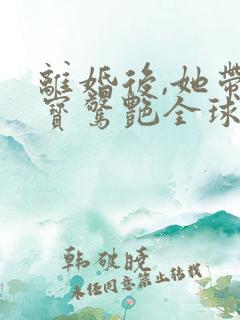 離婚後,她帶
寶驚艷全球
韩破晓
未经同意禁止转载